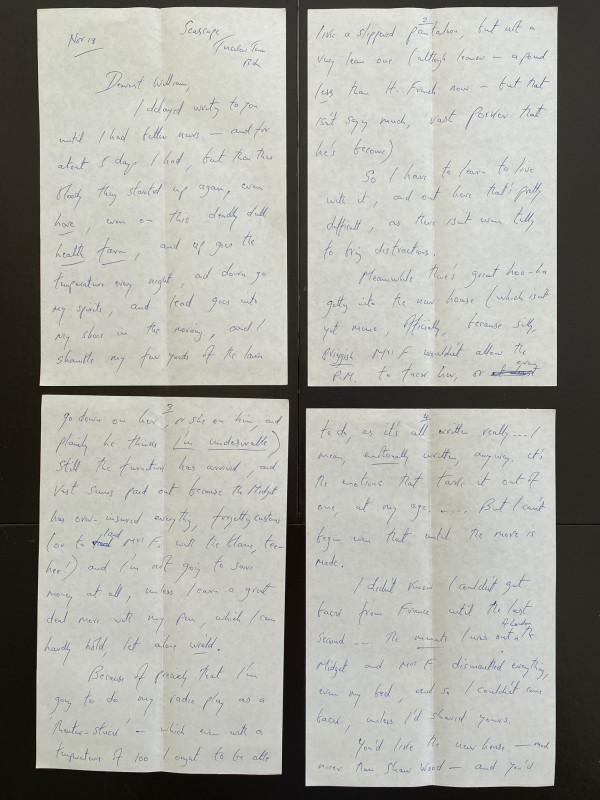 Nov 18
Seascape
Dearest William,
I delayed writing to you
until I had better news – and for
about 5 days I had, but then this
bloody thing started up again, even
here, even on this deadly dull
health farm, and up goes the
temperature every night, and down go
my spirits, and lead goes into
my shoes in the morning, and I
shamble my few yards of the lawn
2
like a slippered pantaloon, but not a
very lean one (although leaner – a pound
less than H. French now – but that
isn't saying much, vast porker that
he's become)
So I have to learn to live
with it, and out here that's pretty
difficult, as there isn't even telly
to bring distractions.
Meanwhile there's great hoo-ha
getting into the new house (which isn't
yet mine, officially, because silly,
priggish Mrs F wouldn't allow the
P.M. to fuck her, or
going
3
go down on her, or she on him, and
plainly he thinks I'm undersexed)
Still the furniture has arrived, and
vast sums paid out because the Midget
has over-insured everything, forgetting customs
(or to land Mrs F. with the blame, tee-
hee!) and I'm not going to save
money at all, unless I earn a great
deal more with my pen, which I can
hardly hold, let alone wield.
Because of precisely that I'm
going to do my radio play as a
– which even with a
temperature of 100 I ought to be able
4
to do, as it's all written really.... I
mean, emotionally written, anyway. It's
the emotions that take it out of
one, at my age...... But I can't
begin even that until the move is
made.
I didn't know I couldn't get
back from France until the last
second – The minute I was out of London
the
Midget and Mrs F dismantled everything,
even my bed, and so I couldn't come
back, unless I'd shared yours.
You'd like the new house – much
nicer than Shaw Wood – and you'd